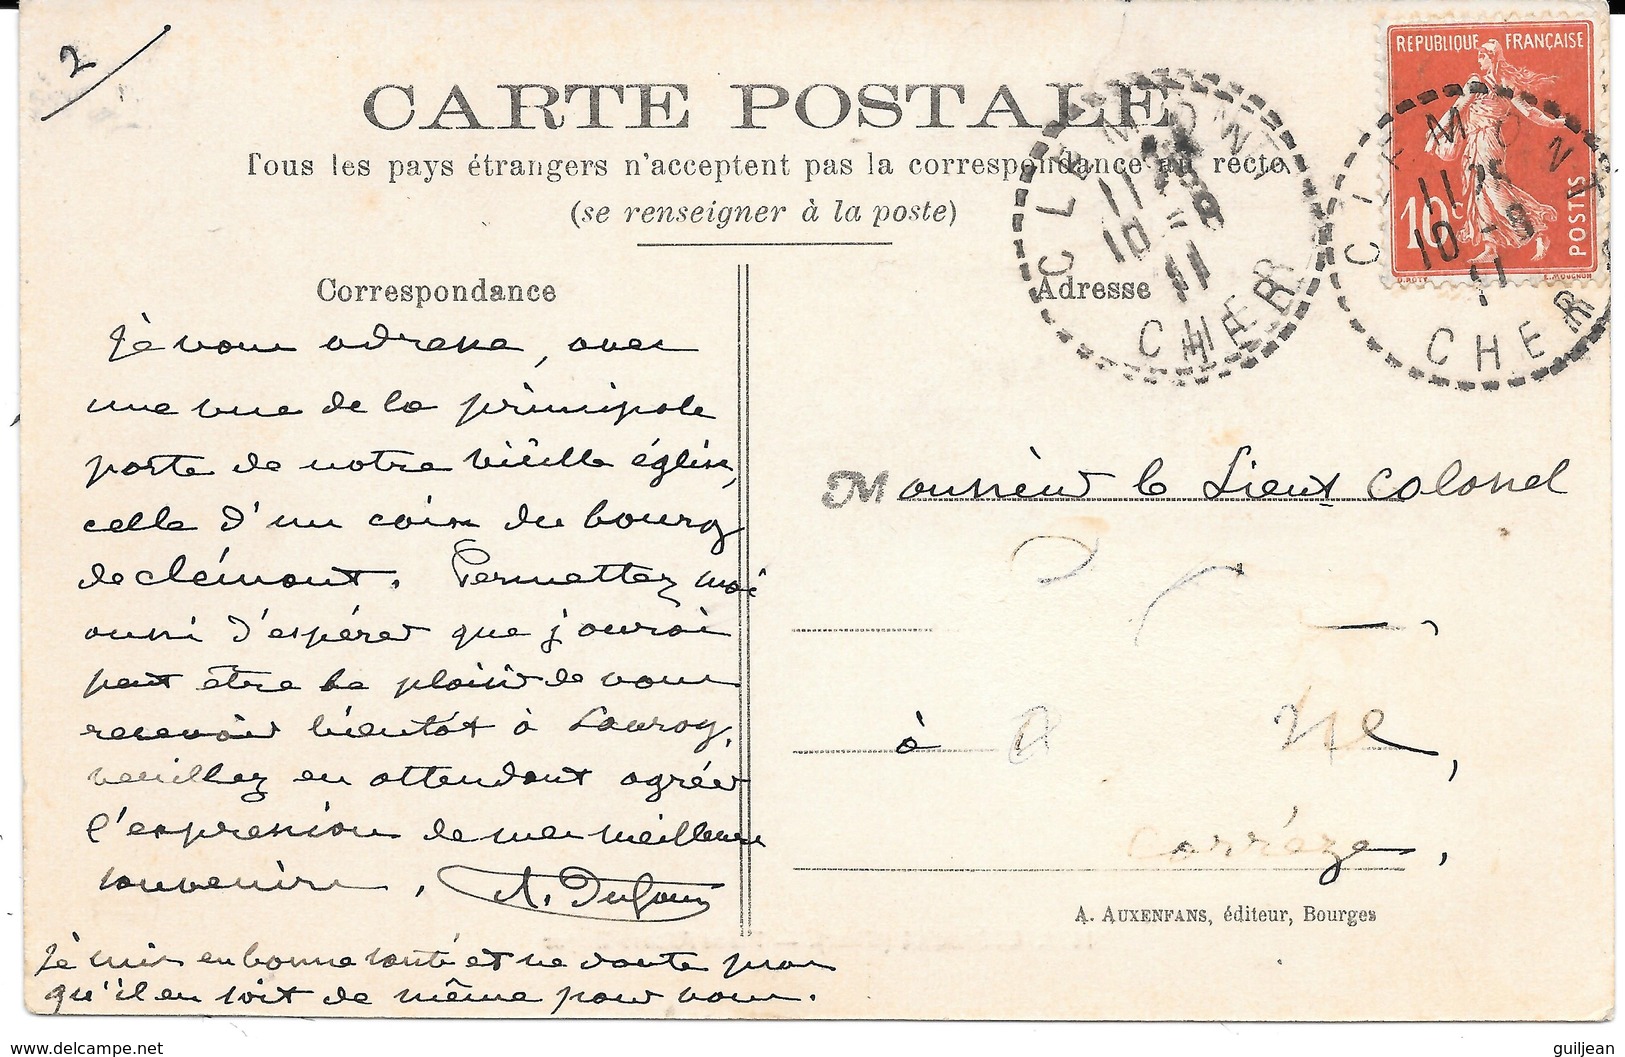 2
CARTE POSTALE
Tous les pays étrangers n'acceptent pas la correspondance au recto.
(se renseigner à la poste)
REPUBLIQUE FRANÇAISE
10c
POSTES
O. ROTY
E. MOUCHON
CLEMONT
11 25
10 - 8
11
CHER
CLEMONT
11 25
10 - 8
11
CHER
Correspondance
Je vous adresse, avec
une vue de la principale
porte de notre vieille église,
celle d'un coin du bourg
de clémont. Permettez moi
aussi d'espérer que j'aurai
peut être le plaisir de vous
recevoir bientôt à Lauroy,
veuillez en attendant agréer
l'expression de mes meilleurs
souvenirs. A. Dufour
Je suis en bonne santé et ne doute pas
qu'il en soit de même pour vous.
Adresse
Monsieur le Lieut colonel
à
Corrèze,
A. AUXENFANS, éditeur, Bourges
www.delcampe.net
guiljean